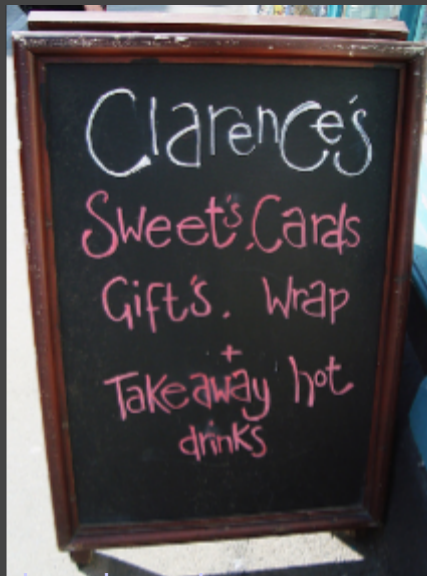 Clarence's
Sweet's, Cards
Gift's. Wrap
+
Takeaway hot
drinks